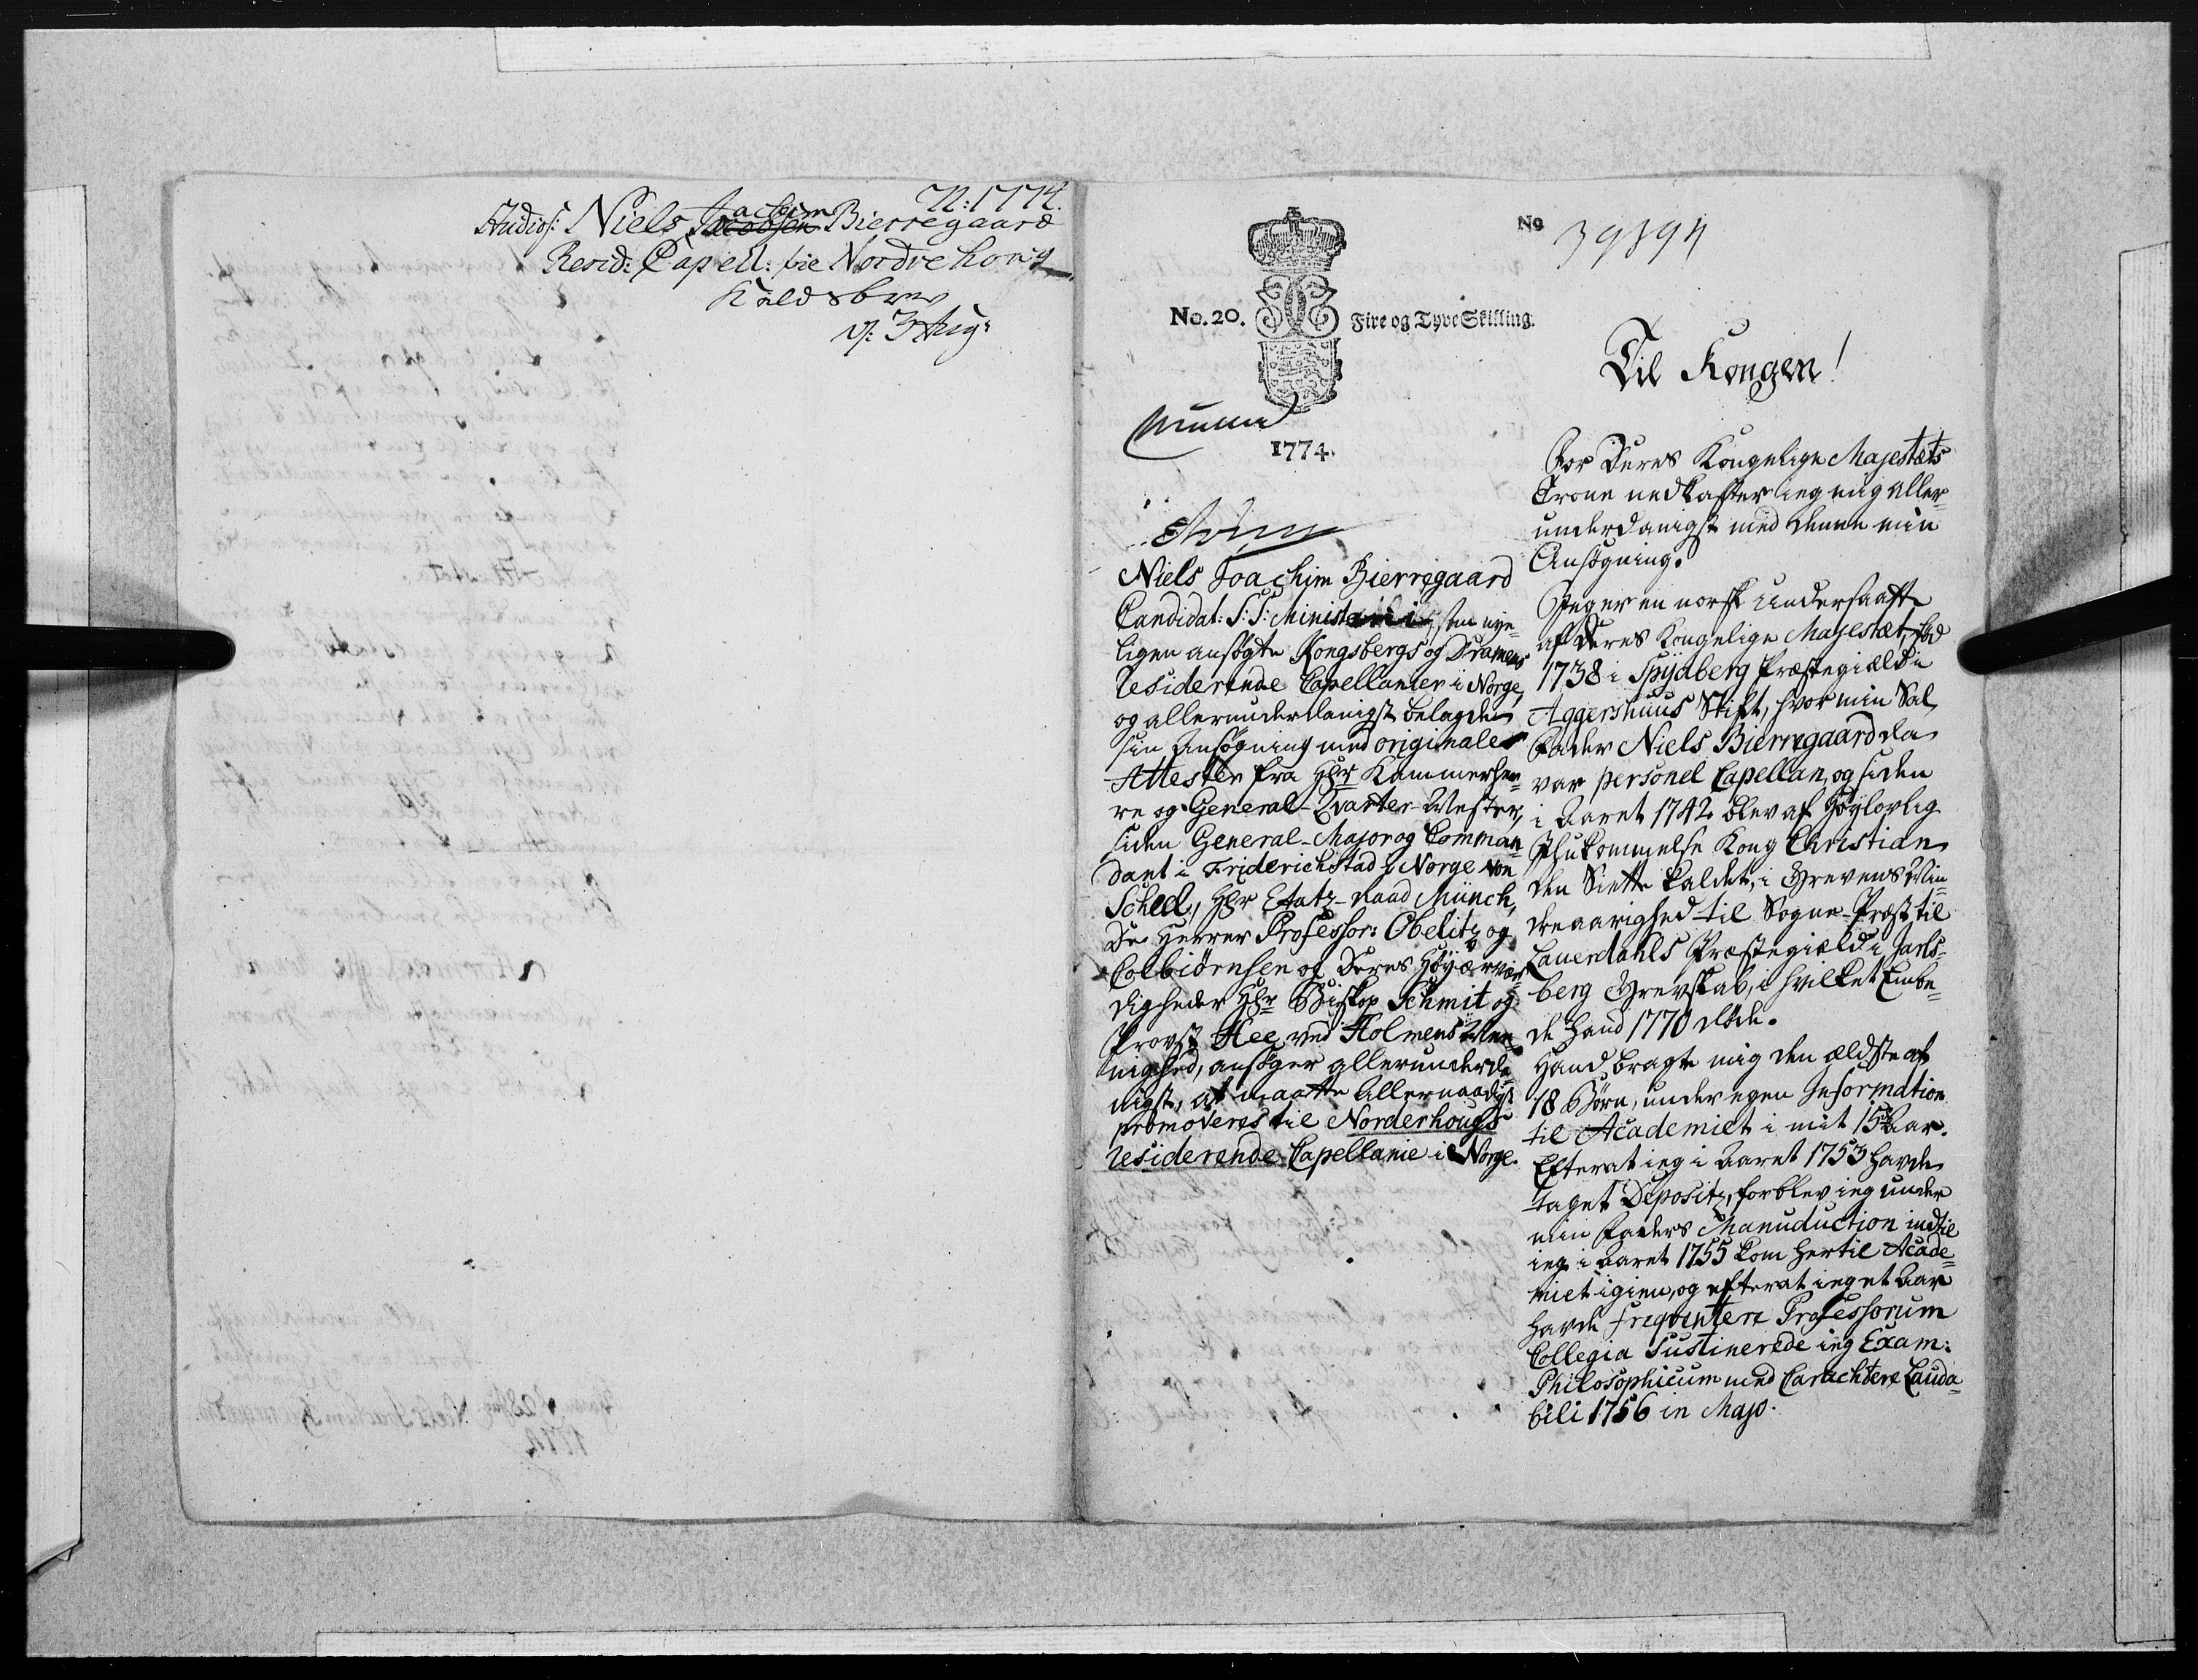 N: 1774.
Studios: Niels Joachim Bierregaard
Resid: Capell: pie Nordrehoug
Kaldsbrev
d: 3 Aug:
No. 20.
Fire og Tyve Skilling.
1774.
Niels Joachim Bierregaard
Candidat: S: S: Ministerii, som nye-
ligen ansøgte Kongsbergs og Dramens
residerende Capellanier i Norge,
og allerunderdanigst belagde
sin Ansøgning med originale
Attester fra Hr Kammerher-
re og General-Qvarter-Mester,
siden General-Major og Comman-
dant i Friderichstad i Norge von
Scheel, Hr Etatz-Raad Münch,
De Herrer Professor: Obelitz og
Colbiørnsen og Deres Høyærvær-
digheder Hr Biskop Schmit og
Provst Hee ved Holmens Me-
nighed, ansøger allerunderda-
nigst, at maatte Allernaadigst
promoveres til Norderhougs
residerende Capellanie i Norge.
No 39894
Til Kongen!
For Deres Kongelige Majestæts
Trone nedkaster jeg mig aller-
underdanigst med denne min
Ansøgning.
Jeg er en norsk Undersaatt
af Deres Kongelige Mayestæt, fød
1738 i Spydberg Præstegield i
Aggershuus Stift, hvor min Sal.
Fader Niels Bierregaard da
var personel Capellan, og siden
i Aaret 1742 blev af Høylovlig
Ihukommelse Kong Christian
den Siette kaldet, i Grevens Min-
dreaarighed til Sogne-Præst til
Laurdahls Præstegield i Jarls-
berg Grevskab, i hvilket Embe-
de Hand 1770 døde.
Hand bragte mig den ældste af
18 Børn, under egen Information
til Academiet i mit 15de Aar.
Efterat jeg i Aaret 1753 havde
taget Depositz, forblev jeg under
min Faders Manuduction indtil
jeg i Aaret 1755 kom hertil Acade-
miet igien, og efterat jeg et Aar
havde freqventere Professorum
Collegia Sustinerede jeg Exam:
Philosophicum med Carachtere Lauda-
bili 1756 in Majo.